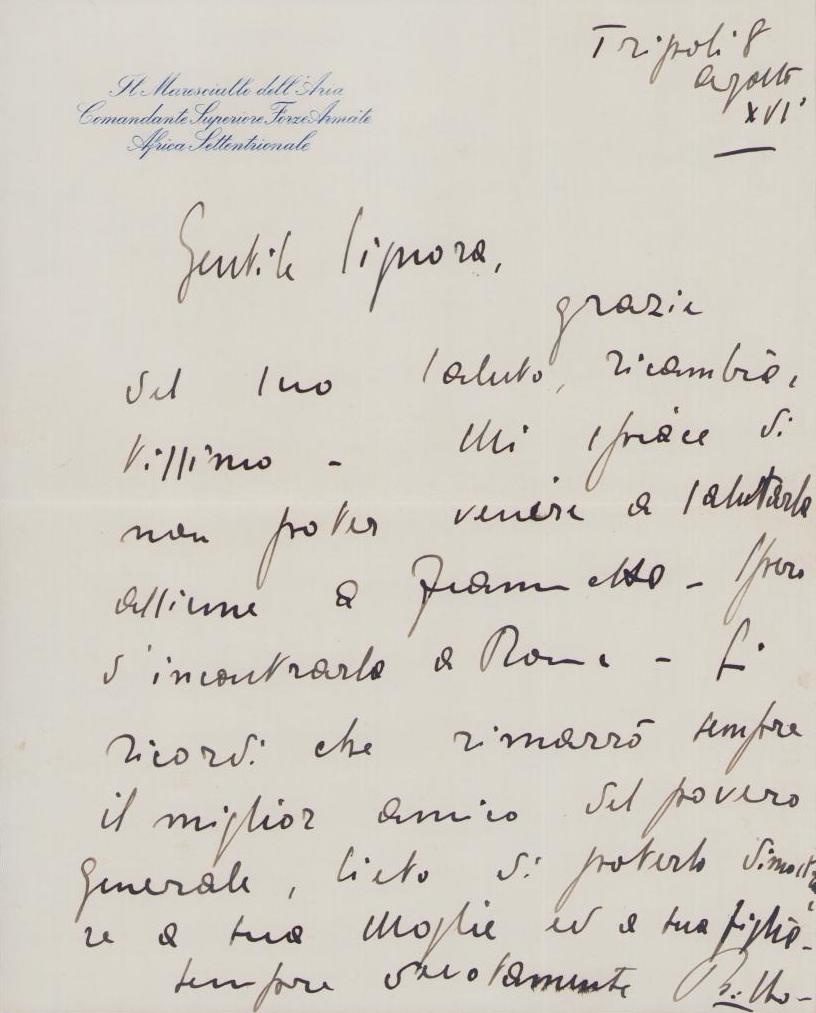 Il Maresciallo dell'Aria
Comandante Superiore Forze Armate
Africa Settentrionale
Tripoli 8
agosto
XVI°
Gentile Signora,
grazie
del suo saluto, ricambia,
tissimo - Mi spiace di
non poter venire a salutarla
assieme a - Spero
d'incontrarla a Roma - Si
ricordi che rimarrò sempre
il miglior amico del povero
Generale, lieto di poterlo dimostra
re a sua Moglie ed a sua figlia -
sempre devotamente Balbo -